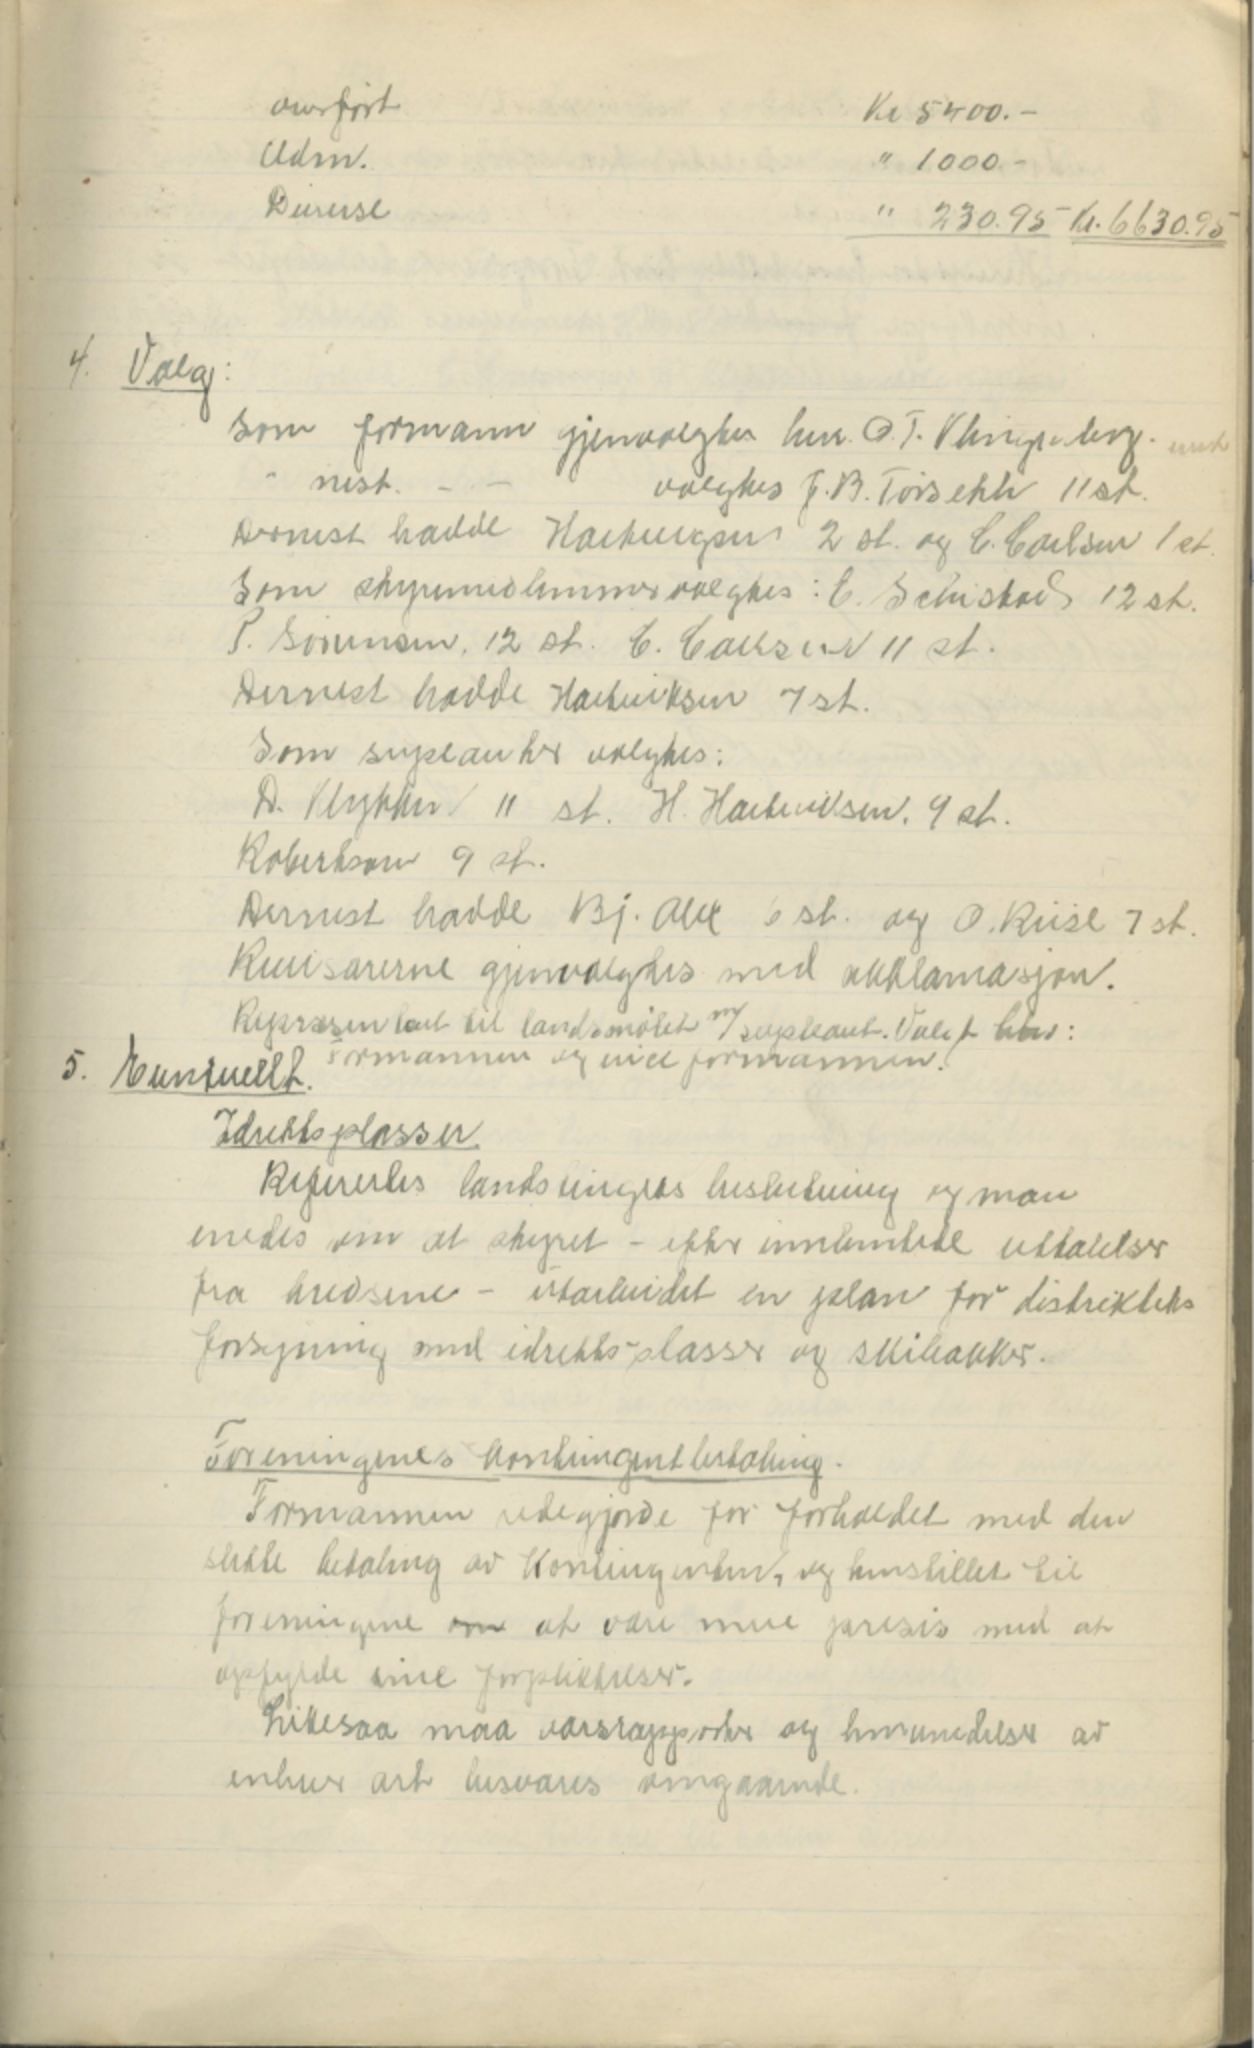 overført Kr 5400.-
Adm. " 1000.-
Diverse " 230.95 Kr. 6630.95
4. Valg:
Som formann gjenvalgtes herr. O.T. Klingenberg.
" nest. - - valgtes J.B. Torseth 11 st.
Dernest hadde Hartvigsen 2 st. og C. Carlsen 1 st.
Som styremedlemmer valgtes: E. Schistad 12 st.
P. Sørensen. 12 st. C. Carlsen 11 st.
Dernest hadde Hartviksen 7 st.
Som supleanter valgtes:
D. Klykken 11 st. H. Hartviksen. 9 st.
Robertsen 9 st.
Dernest hadde Bj. 6 st. og O. Riise 7 st.
Revisorerne gjenvalgtes med akklamasjon.
Representant til landsmøtet m/supleant. Valgt blev:
Formannen og viceformannen.
5. Eventuellt.
Idrettsplasser
Refereertes landstingets beslutning og man
enedes om at styret - efter innhentede uttalelser
fra kredsene - utarbeidet en plan for distriktets
forsyning med idrettsplasser og skibakker.
Foreningenes kontingentbetaling.
Formannen redegjorde for forholdet med den
slette betaling av kontingenten, og henstillet til
foreningene om at være mere presis med at
opfylde sine forpliktelser.
Likesaa maa aarsrapporter og henvendelser av
enhver art besvares omgaaende.